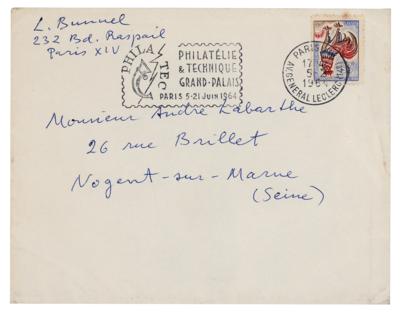 L. Bunuel
232 Bd. Raspail
Paris XIV
PHILATEC
PHILATÉLIE
& TECHNIQUE
GRAND-PALAIS
PARIS 5-21 JUIN 1964
PARIS
AV. GENERAL LECLERC (14)
Monsieur André Labarthe
26 rue Brillet
Nogent-sur-Marne
(Seine)